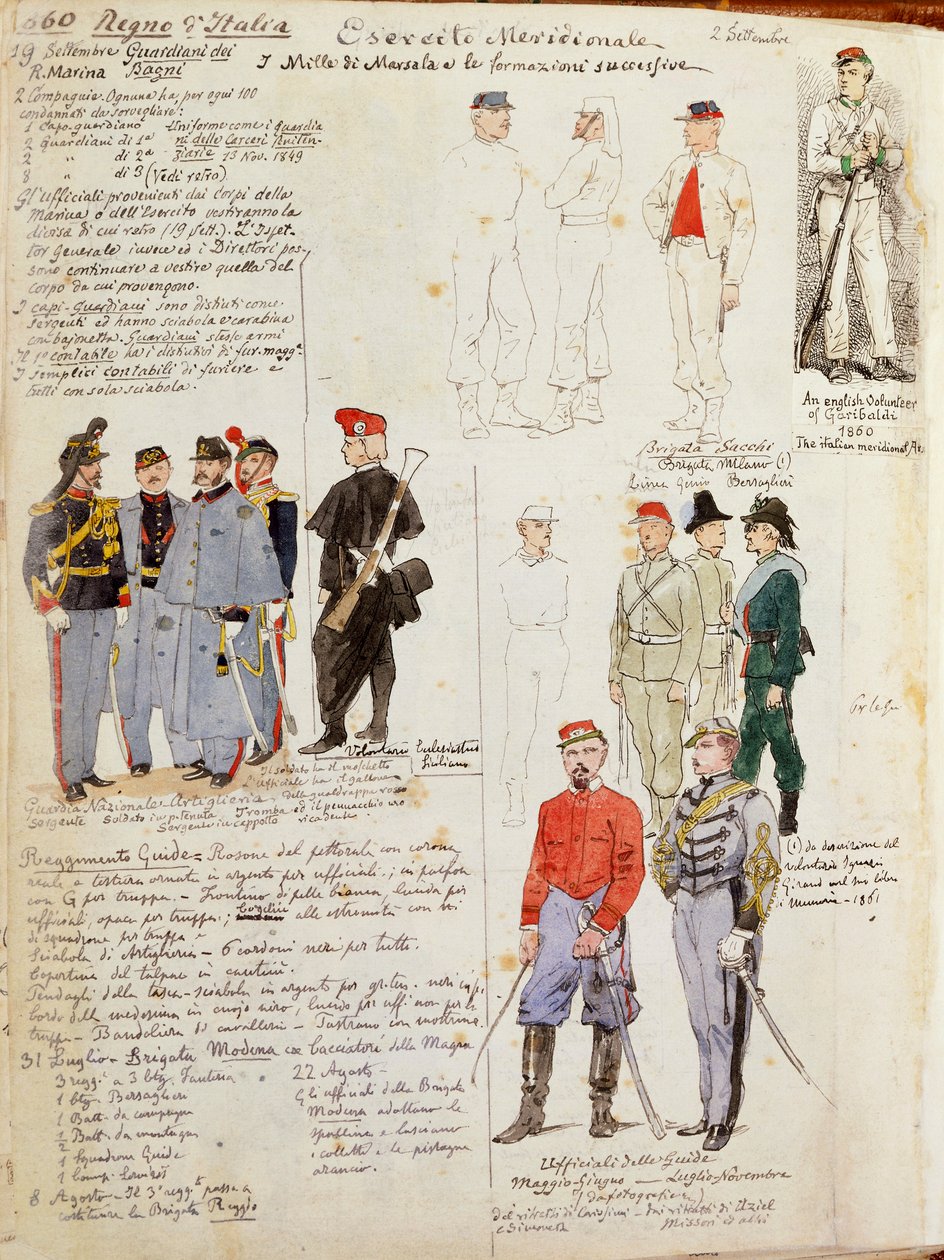 1860 Regno d'Italia
19 Settembre Guardiani dei
R. Marina Bagni
2 Compagnie. Ognuna ha, per ogni 100
condannati da sorvegliare:
1 capo-guardiano Uniforme come i guardia
2 guardiani di 1a ni delle Carceri Peniten-
2 " di 2a ziarie 13 Nov. 1849
8 " di 3 (Vedi retro)
Gli ufficiali provenienti dai corpi della
Marina o dell'Esercito vestiranno la
divisa di cui retro (19 Sett.). L'Ispet-
tor Generale invece ed i Direttori pos-
sono continuare a vestire quella del
corpo da cui provengono.
I capi-Guardiani sono distinti come
sergenti ed hanno sciabola e carabina
con bajonetta. Guardiani stesse armi
Il 1o contabile ha i distintivi di fur. maggre
I semplici contabili di furiere e
tutti con sola sciabola.
Esercito Meridionale
2 Settembre
I Mille di Marsala e le formazioni successive
An english Volunteer
of Garibaldi
1860
The italian meridional Ar.
Brigata Sacchi
Brigata Milano (1)
Linea Genio Bersaglieri
Volontario Ecclesiastico
Siciliano
Il soldato ha il moschetto
L'ufficiale ha il gallone
della gualdrappa rosso
Guardia Nazionale Artiglieria
Sergente Soldato in p. tenuta Tromba ed il pennacchio
Sergente in cappotto ricadente.
(1) da descrizione del
volontario
Girard nel suo libro
Memorie - 1861
Reggimento Guide = Rosone del pettorale con corona
reale e testiera ornata in argento per ufficiali;
con G per truppa. - Frontino di pelle bianca, lucida per
ufficiali, opaca per truppa; alle estremità con
di squadrone per truppa
Sciabola di Artiglieria - 6 cordoni neri per tutti.
Copertina del talpac in
Pendagli della tasca-sciabola in argento per
bordo della medesima in cuojo nero, lucido per uff. non per la
truppa - Bandoliera di cavalleria - Pastrano con mostrine
31 Luglio - Brigata Modena Cacciatori della Magra
3 regg. a 3 btg. Fanteria
1 btg. Bersaglieri
1 Batt. da campagna
1 Batt. da montagna
1 Squadrone Guide
1 Comp.
8 Agosto - Il 3o regg.t passa a
costituire la Brigata Reggio
22 Agosto -
Gli ufficiali della Brigata
Modena adottano le
spalline e lasciano
i colletti e le pistagne
arancio.
Ufficiali delle Guide
Maggio-Giugno — Luglio-Novembre
(da fotografie)
dai ritratti di
Missori ed altri